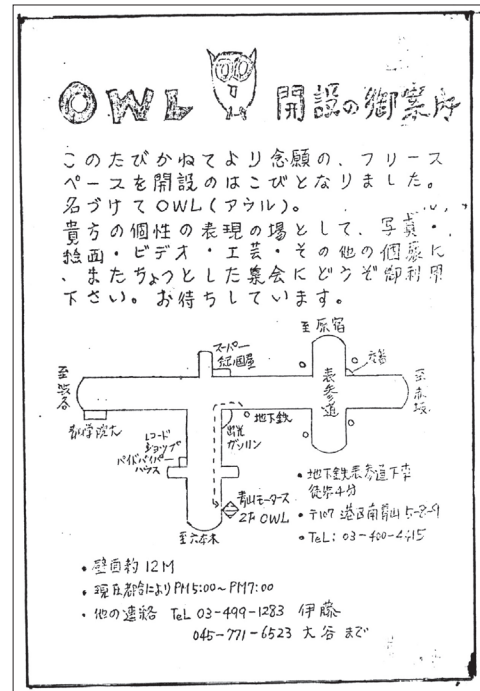 OWL 開設の御案内
このたびかねてより念願の、フリース
ペースを開設のはこびとなりました。
名づけてOWL(アウル)。
貴方の個性の表現の場として、写真・
絵画・ビデオ・工芸・その他の個展に
、またちょっとした集会にどうぞ御利用
下さい。お待ちしています。
至原宿
スーパー
紀ノ国屋
交番
至渋谷
表参道
至赤坂
青学院大
地下鉄
出光
ガソリン
レコード
ショップ
パイドパイパー
ハウス
青山モータース
2F OWL
至六本木
・地下鉄表参道下車
徒歩4分
・〒107 港区南青山5-8-9
・TeL: 03-400-4415
・壁面約12M
・現在都合によりPM5:00〜PM7:00
・他の連絡 TeL 03-499-1283 伊藤
045-771-6523 大谷まで